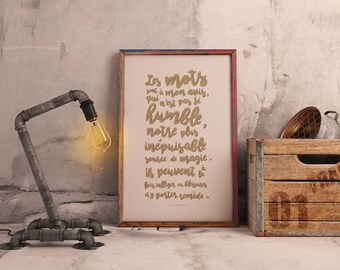 Les mots
sont à mon avis,
qui n'est pas si
humble,
notre plus
inépuisable
source de magie.
ils peuvent à la
fois infliger des blessures
et y porter remède.